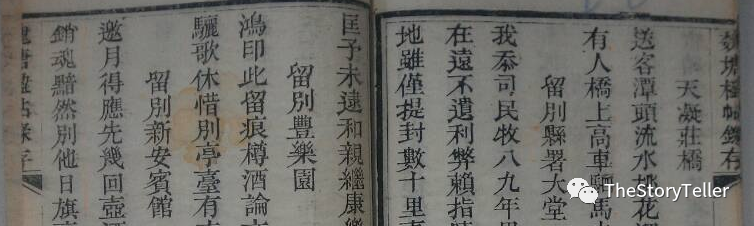 魏塘楹帖錄存
天凝莊橋
送客潭頭流水桃花
有人橋上高車駟馬
留別縣署大堂
我忝司民牧八九年
在遠不遺利弊賴指
地雖僅提封數十里
匡予未逮和親繼康樂
留別豐樂園
鴻印此留痕樽酒論
驪歌休惜別亭臺有
留別新安賓館
邀月得應先幾回壺酒
銷魂黯然別他日旗
魏塘楹帖錄存
TheStoryTeller